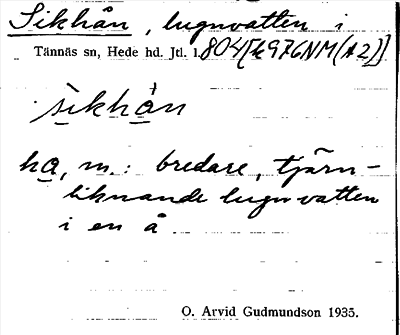 Sikhån, lugnvatten i
Tännäs sn, Hede hd. Jtl. l. 804[k976NM(A2)]
sikhån
ha, m.: bredare, tjärn-
liknande lugnvatten
i en å
O. Arvid Gudmundson 1935.